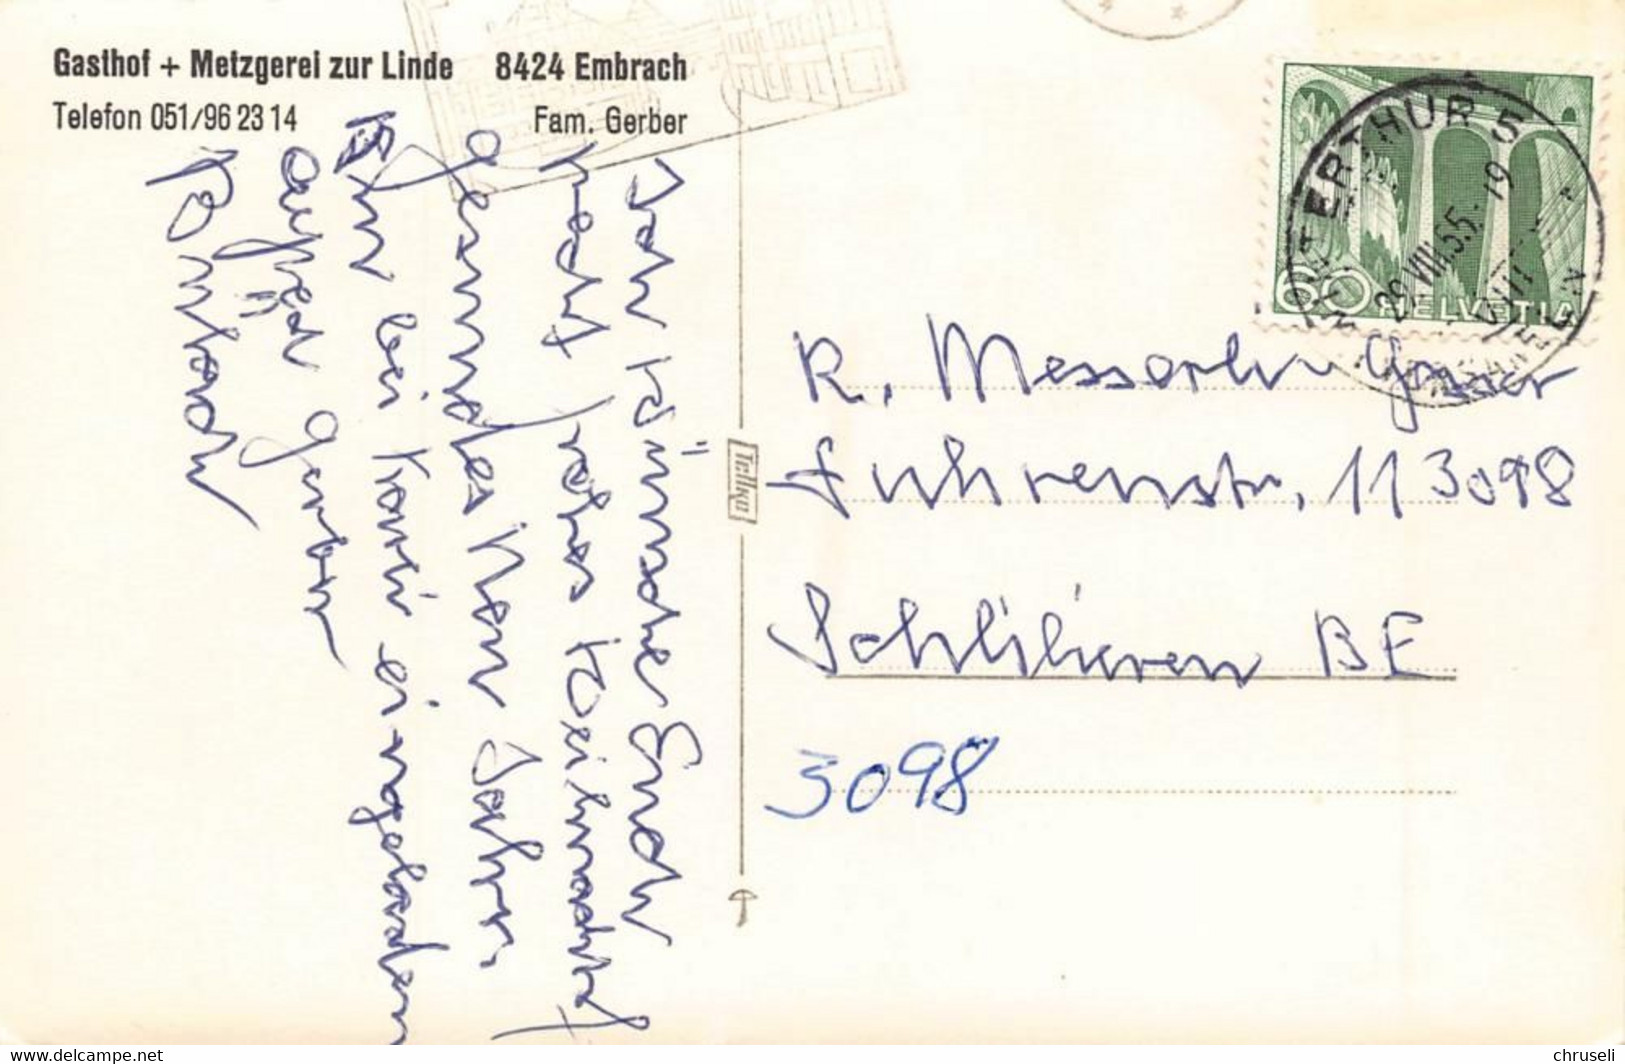 Gasthof + Metzgerei zur Linde 8424 Embrach
Telefon 051/96 23 14 Fam. Gerber
Ich Wünsche Euch
recht frohes Weihnacht
gesundes Neu Jahr.
bei Karli eingeladen
Alfred Gerber
Embrach
Tellko
WINTERTHUR 5
29.VIII.55.-19
60 HELVETIA
R. Messerli-Gasser
Fuhrenstr. 11 3098
Schliieren BE
3098
www.delcampe.net
chruseli